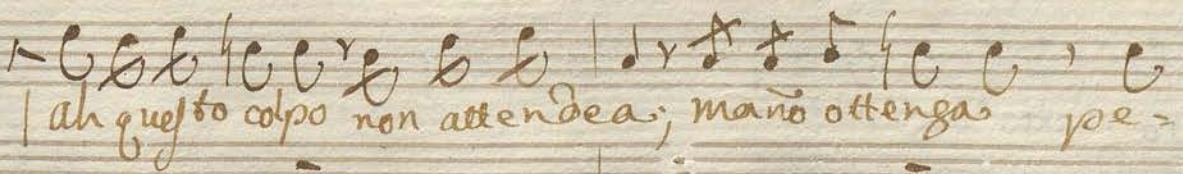 ah questo colpo non attendea; mañо ottenga pe=